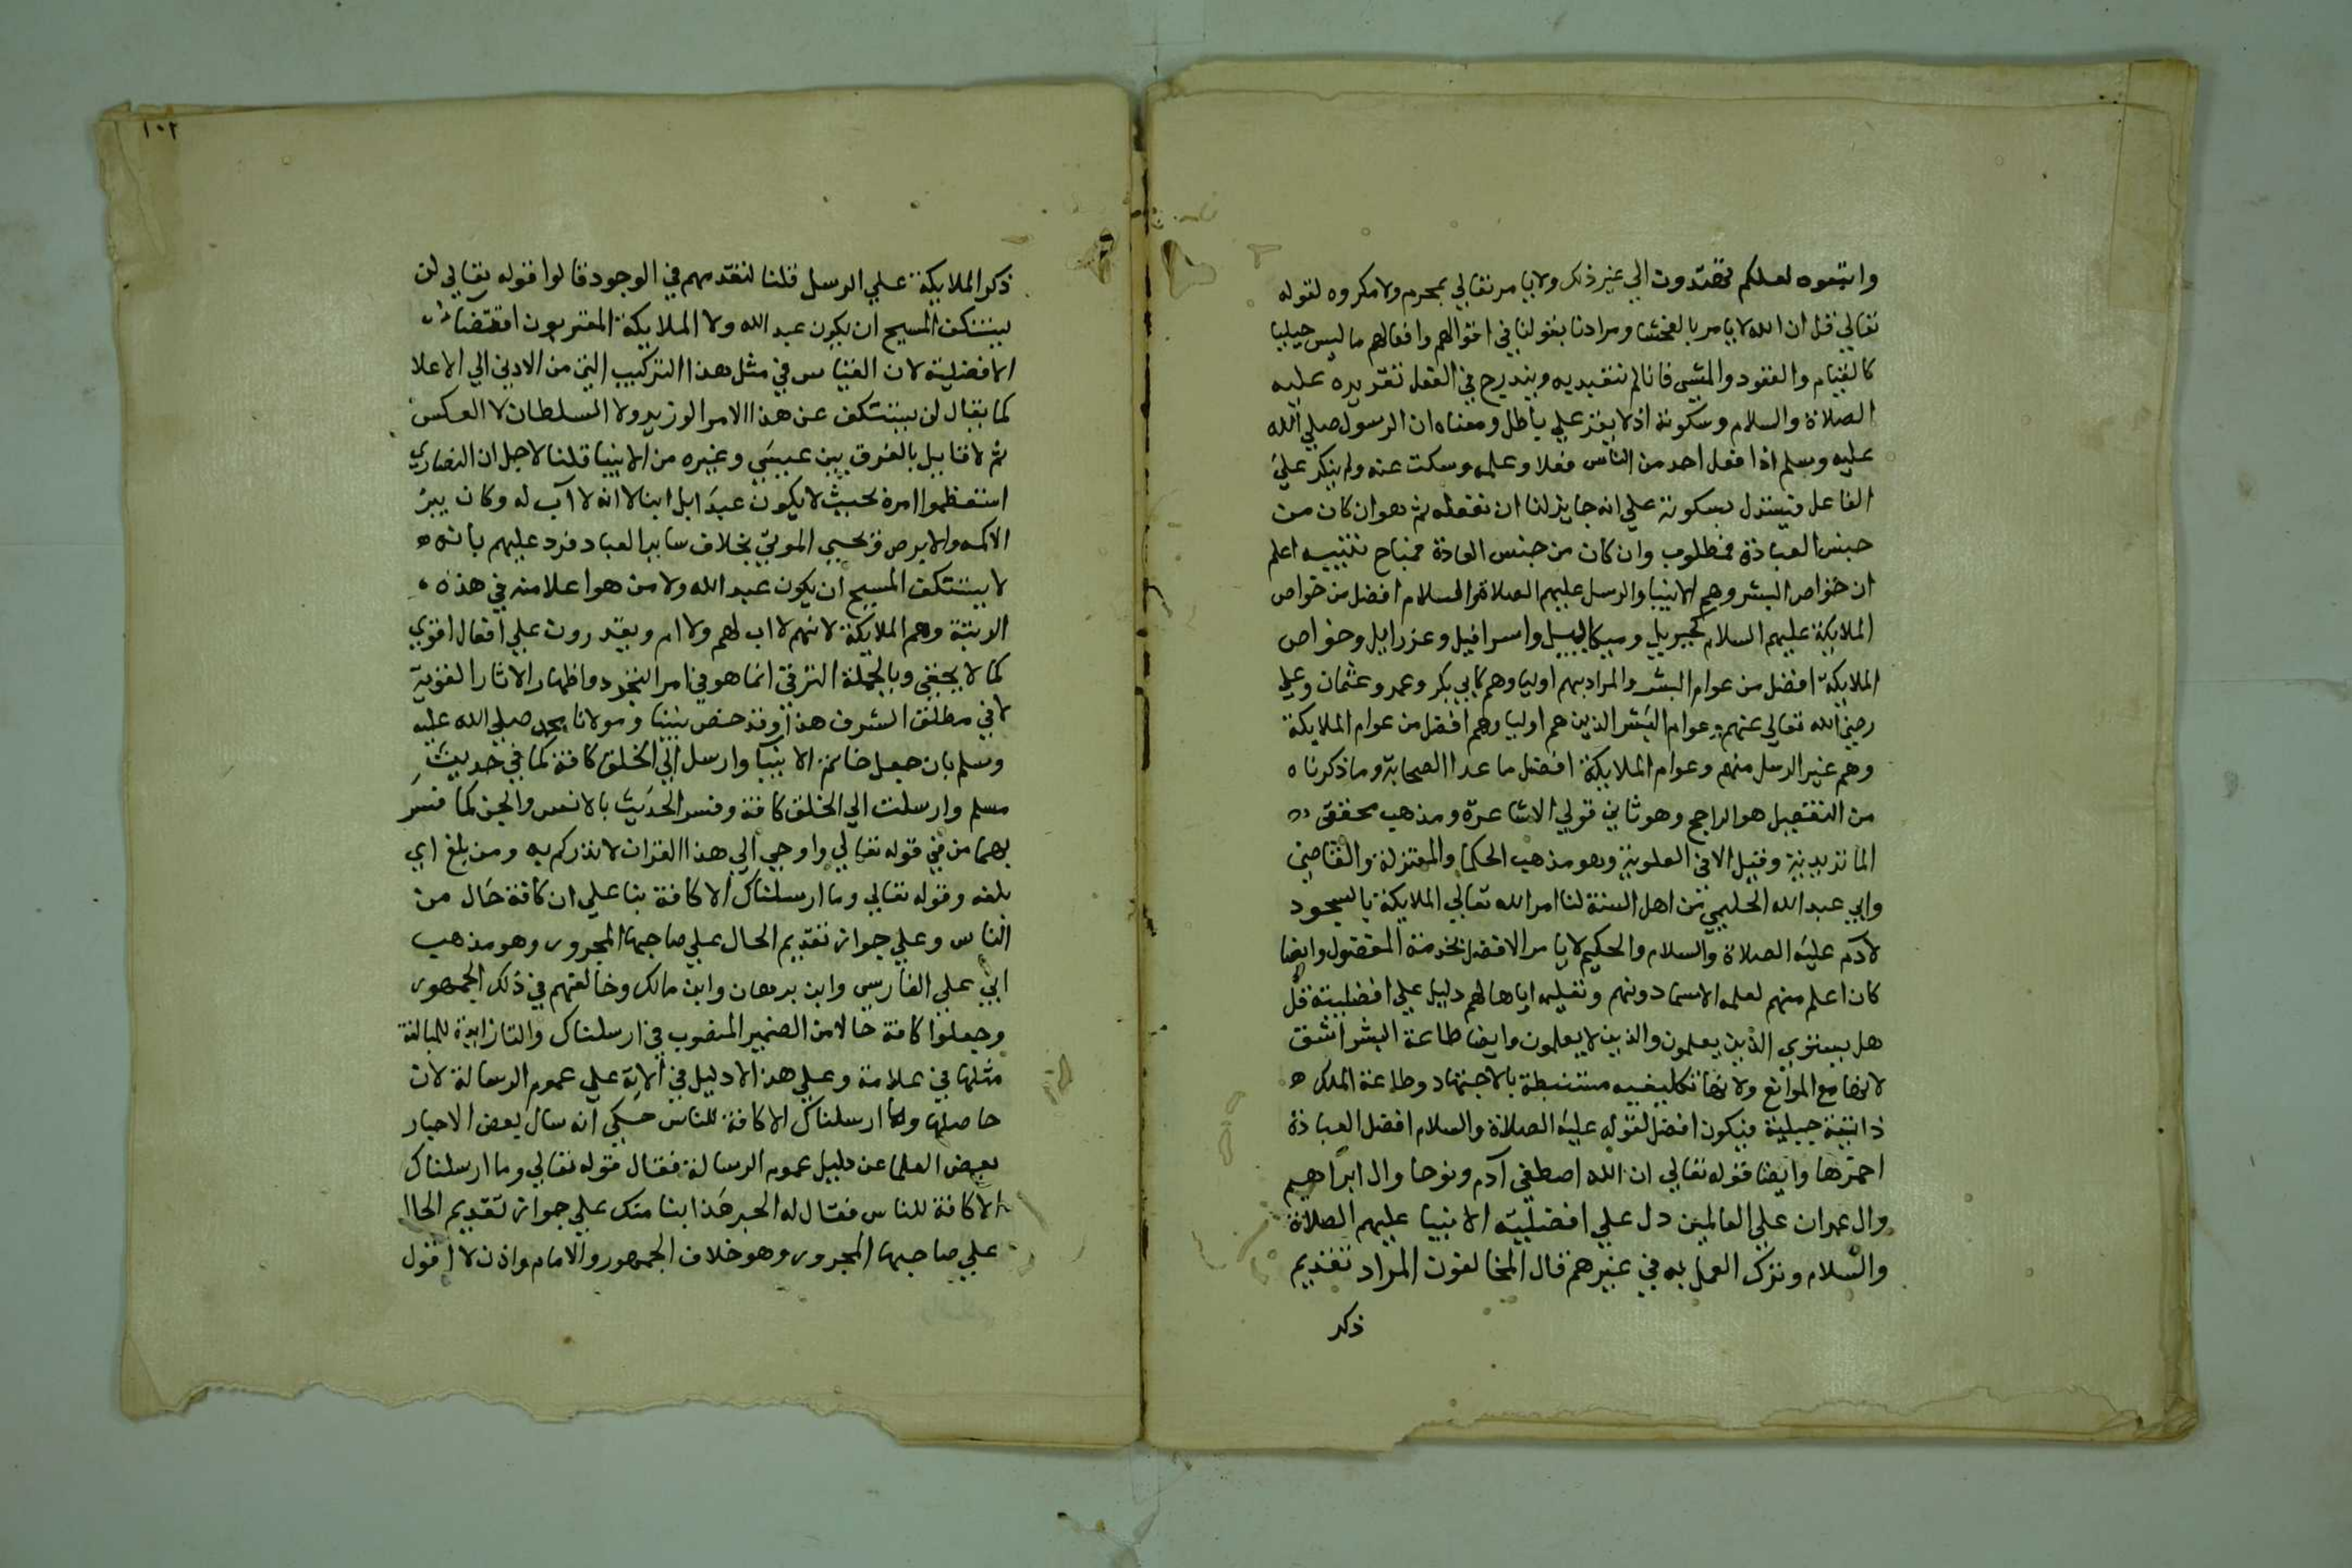 واتبعوه لعلكم تهتدون الي غير ذلك ولا يامر تعالي بمحرم ولا مكروه لقوله
تعالي قل ان الله لا يامر بالفحشا ومرادنا بقولنا في اقوالهم وافعالهم ما ليس جبليا
كالقيام والقعود والمشي فانا لم نتقيد به ويندرج في الفعل تقريره عليه
الصلاة والسلام وسكوته اذ لا يقر علي باطل ومعناه ان الرسول صلي الله
عليه وسلم اذا فعل احد من الناس فعلا وعلمه وسكت عنه ولم ينكر علي
الفاعل فيستدل بسكوته علي انه جايز لنا ان نفعله ثم هو ان كان من
جنس العبادة فمطلوب وان كان من جنس العادة فمباح تنبيه اعلم
ان خواص البشر وهم الانبيا والرسل عليهم الصلاة والسلام افضل من خواص
الملايكة عليهم السلام كجبريل وميكاييل واسرافيل وعزراييل وخواص
الملايكة افضل من عوام البشر والمراد بهم اوليا وهم كابي بكر وعمر وعثمان وعلي
رضي الله تعالي عنهم وعوام البشر الذين هم اوليا وهم افضل من عوام الملايكة
وهم غير الرسل منهم وعوام الملايكة افضل ما عدا الصحابة وما ذكرناه
من التفصيل هو الراجح وهو ثاني قولي الاشاعرة ومذهب محققي
الماتريدية وقيل الا في العلوية وهو مذهب الحكما والمعتزلة والقاضي
وابي عبد الله الحليمي من اهل السنة لنا امر الله تعالي الملايكة بالسجود
لادم عليه الصلاة والسلام والحكيم لا يامر الافضل بخدمة المفضول وايضا
كان اعلم منهم لعلمه الاسما دونهم وتعليمه اياها لهم دليل علي افضليته قل
هل يستوي الذين يعلمون والذين لا يعلمون وايضا طاعة البشر اشق
لانها مع الموانع ولانها تكليفيه مستنبطة بالاجتهاد وطاعة الملك
ذاتية جبلية فيكون افضل لقوله عليه الصلاة والسلام افضل العبادة
احمزها وايضا قوله تعالي ان الله اصطفي آدم ونوحا وال ابراهيم
وال عمران علي العالمين دل علي افضلية الانبيا عليهم الصلاة
والسلام وترك العمل به في غيرهم قال المخالفون المراد تقديم
ذكر
١٠٢
ذكر الملايكة علي الرسل قلنا لتقدمهم في الوجود قالوا قوله تعالي لن
يستنكف المسيح ان يكون عبد الله ولا الملايكة المقربون اقتضا
الافضلية لان القياس في مثل هذا التركيب الترقي من الادني الي الاعلا
كما يقال لن يستنكف عن هذا الامر الوزير ولا السلطان لا العكس
ثم لا قايل بالفرق بين عيسي وغيره من الانبيا قلنا لاجل ان النصاري
استعظموا امره بحيث لا يكون عبدا بل ابنا لانه لا آب له وكان يبرئ
الاكمه والابرص ويحيي الموتي بخلاف ساير العباد فرد عليهم بانه
لا يستنكف المسيح ان يكون عبد الله ولا من هو اعلا منه في هذه
الرتبة وهم الملايكة لانهم لا اب لهم ولا ام ويقدرون علي افعال اقوي
كما لا يخفي وبالجملة الترقي انما هو في امر التجرد واظهار الاثار القوية
لا في مطلق الشرف هذا وقد خص نبينا ومولانا محمد صلي الله عليه
وسلم بان جعل خاتم الانبيا وارسل الي الخلق كافة كما في حديث
مسلم وارسلت الي الخلق كافة وفسر الحديث بالانس والجن كما فسر
بهما من في قوله تعالي واوحي الي هذا القران لانذركم به ومن بلغ اي
بلغه وقوله تعالي وما ارسلناك الا كافة بنا علي ان كافة حال من
الناس وعلي جواز تقديم الحال علي صاحبها المجرور وهو مذهب
ابي علي الفارسي وابن برهان وابن مالك وخالفهم في ذلك الجمهور
وجعلوا كافة حالا من الضمير المنصوب في ارسلناك والتا زايدة للمبالغة
مثلها في علامة وعلي هذا لا دليل في الاية علي عموم الرسالة لان
حاصلها وما ارسلناك الا كافة للناس حكي انه سال بعض الاحبار
بعض العلما عن دليل عموم الرسالة فقال قوله تعالي وما ارسلناك
الا كافة للناس فقال له الحبر هذا بنا منك علي جواز تقديم الحال
علي صاحبها المجرور وهو خلاف الجمهور والامام واذن لا اقول